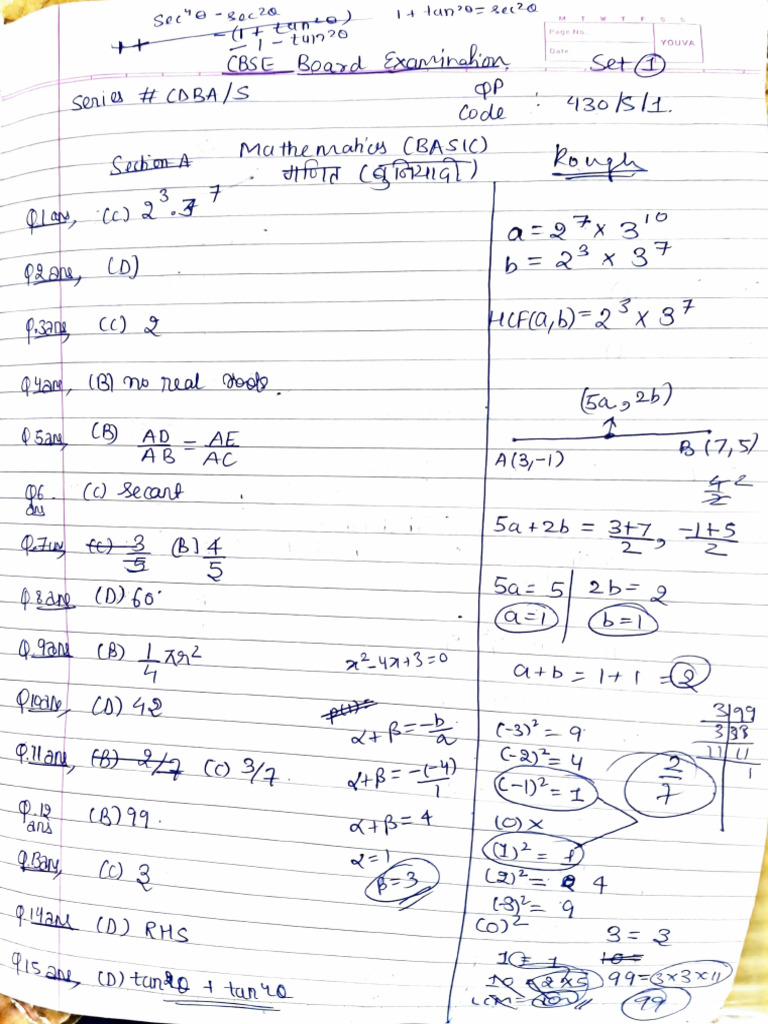 sec⁴θ - sec²θ
1 + tan²θ = sec²θ
-(1 + tan²θ)
++ - 1 - tan²θ
M T W T F S S
Page No.:
Date:
YOUVA
CBSE Board Examination
Set ①
Series # CDBA/S
QP Code : 430/S/1.
Section A
Mathematics (BASIC)
गणित (बुनियादी)
Rough
Q1ans, (C) 2³·3⁷
Q2ans, (D)
Q.3ans, (C) 2
Q4ans, (B) no real roots.
Q5ans, (B) AD/AB = AE/AC
Q6. ans (C) Secant
Q.7ans, (C) 3/5 (B) 4/5
Q.8ans (D) 60°
Q.9ans (B) 1/4 πr²
Q10ans, (D) 42
Q.11ans, (B) 2/7 (C) 3/7
Q.12 ans (B) 99.
Q.13ans, (C) 3
Q14ans (D) RHS
Q15ans, (D) tan²θ + tan⁴θ
x² - 4x + 3 = 0
p(1) =
α + β = -b/a
α + β = -(-4)/1
α + β = 4
α = 1
β = 3
a = 2⁷ × 3¹⁰
b = 2³ × 3⁷
HCF(a,b) = 2³ × 3⁷
(5a, 2b)
A(3,-1) B(7,5)
4/2 2
5a + 2b = 3+7/2, -1+5/2
5a = 5 | 2b = 2
a = 1 | b = 1
a + b = 1 + 1 = 2
(-3)² = 9
(-2)² = 4
(-1)² = 1
(0) ×
(1)² = 1
(2)² = 4
(-3)² = 9
(0)²
3 | 99
3 | 33
11 | 11
1
2/7
3 = 3
10 = 1
10 =
10 = 2×5
99 = 3×3×11
99